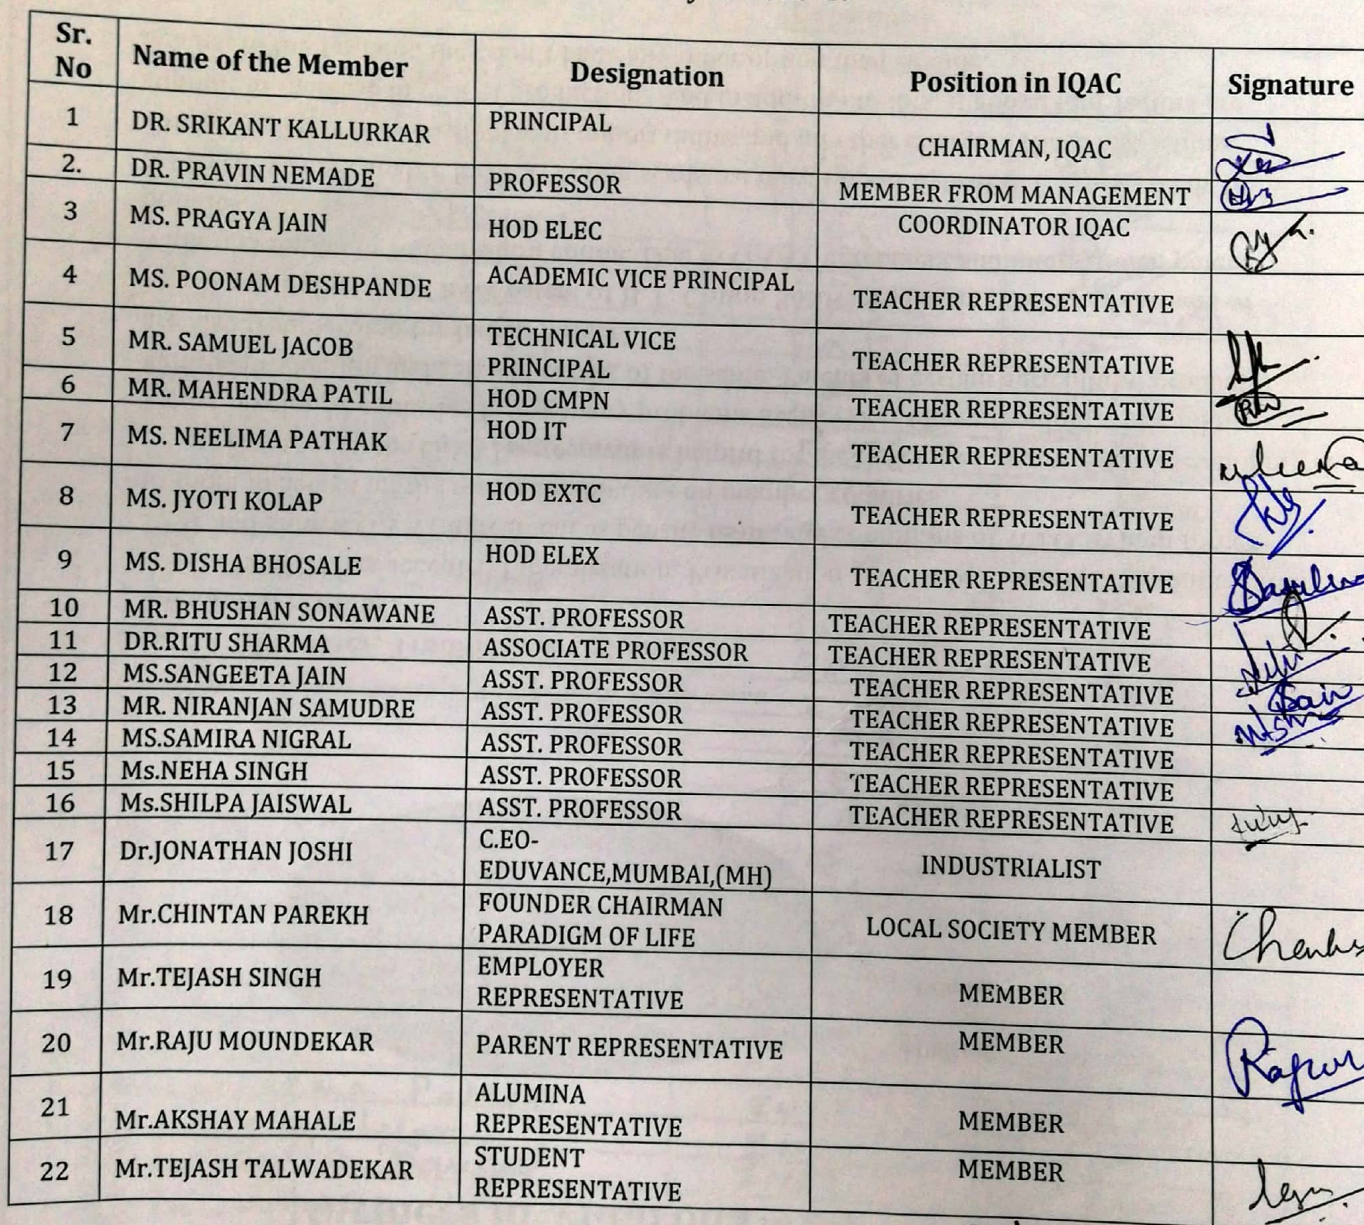 Sr. No Name of the Member Designation Position in IQAC Signature
1 DR. SRIKANT KALLURKAR PRINCIPAL CHAIRMAN, IQAC
2. DR. PRAVIN NEMADE PROFESSOR MEMBER FROM MANAGEMENT
3 MS. PRAGYA JAIN HOD ELEC COORDINATOR IQAC
4 MS. POONAM DESHPANDE ACADEMIC VICE PRINCIPAL TEACHER REPRESENTATIVE
5 MR. SAMUEL JACOB TECHNICAL VICE PRINCIPAL TEACHER REPRESENTATIVE
6 MR. MAHENDRA PATIL HOD CMPN TEACHER REPRESENTATIVE
7 MS. NEELIMA PATHAK HOD IT TEACHER REPRESENTATIVE
8 MS. JYOTI KOLAP HOD EXTC TEACHER REPRESENTATIVE
9 MS. DISHA BHOSALE HOD ELEX TEACHER REPRESENTATIVE
10 MR. BHUSHAN SONAWANE ASST. PROFESSOR TEACHER REPRESENTATIVE
11 DR.RITU SHARMA ASSOCIATE PROFESSOR TEACHER REPRESENTATIVE
12 MS.SANGEETA JAIN ASST. PROFESSOR TEACHER REPRESENTATIVE
13 MR. NIRANJAN SAMUDRE ASST. PROFESSOR TEACHER REPRESENTATIVE
14 MS.SAMIRA NIGRAL ASST. PROFESSOR TEACHER REPRESENTATIVE
15 Ms.NEHA SINGH ASST. PROFESSOR TEACHER REPRESENTATIVE
16 Ms.SHILPA JAISWAL ASST. PROFESSOR TEACHER REPRESENTATIVE
17 Dr.JONATHAN JOSHI C.EO- EDUVANCE,MUMBAI,(MH) INDUSTRIALIST
18 Mr.CHINTAN PAREKH FOUNDER CHAIRMAN PARADIGM OF LIFE LOCAL SOCIETY MEMBER
19 Mr.TEJASH SINGH EMPLOYER REPRESENTATIVE MEMBER
20 Mr.RAJU MOUNDEKAR PARENT REPRESENTATIVE MEMBER
21 Mr.AKSHAY MAHALE ALUMINA REPRESENTATIVE MEMBER
22 Mr.TEJASH TALWADEKAR STUDENT REPRESENTATIVE MEMBER